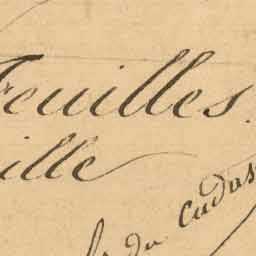 Feuilles.
ille
du Cadas